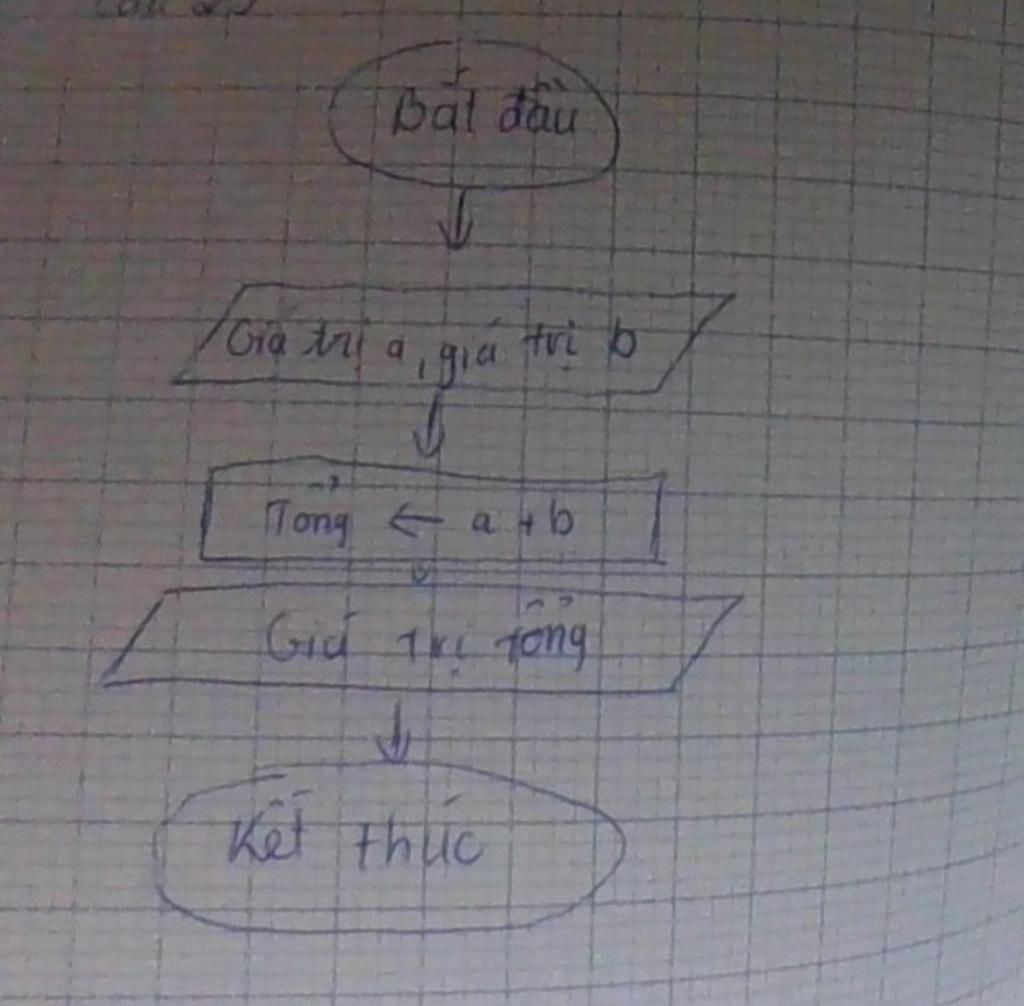 Bắt đầu
Giá trị a, giá trị b
Tổng ← a + b
Giá trị tổng
Kết thúc